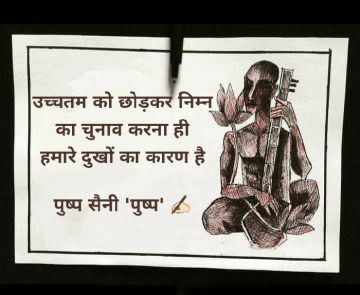 उच्चतम को छोड़कर निम्न
का चुनाव करना ही
हमारे दुखों का कारण है
पुष्प सैनी 'पुष्प' ✍🏻